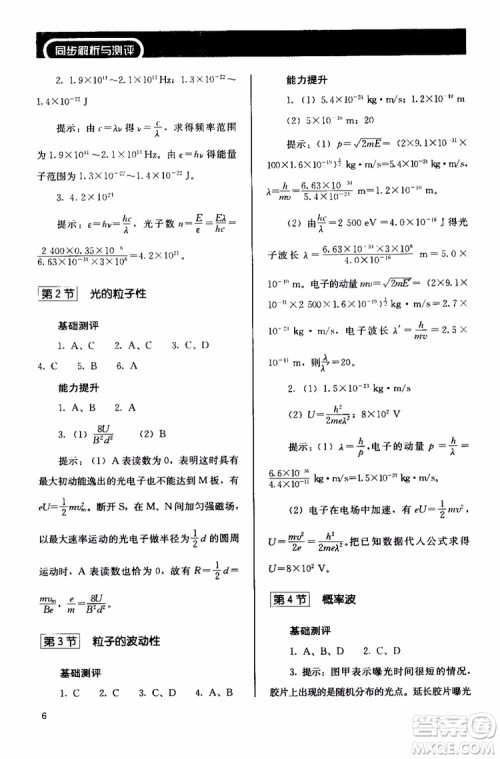 同步解析与测评
2. 1.9×10¹¹～2.1×10¹¹ Hz；1.3×10⁻²²～
1.4×10⁻²² J
提示：由 c＝λν，求得频率范围
为 1.9×10¹¹～2.1×10¹¹ Hz，由 ε＝hν 得能量
子范围为 1.3×10⁻²²～1.4×10⁻²² J。
3. 4.2×10²¹
提示：ε＝hν＝hc/λ，光子数 n＝E/ε＝Eλ/hc＝
2 400×0.35×10⁻⁶/6.63×10⁻³⁴×3×10⁸＝4.2×10²¹。
第2节 光的粒子性
基础测评
1. A、C 2. B、D 3. C、D
4. C 5. B 6. A
能力提升
1. D 2. A
3. （1）8U/B²d² （2）B
提示：（1）A 表读数为 0，表明从 N 板有
最大初动能逸出的光电子没能到达 M 板，有
eU＝½mv²ₘ。断开 S，在 M、N 间加匀强磁场，
以最大速率运动的光电子做半径为 ½d 的圆周
运动时，A 表的读数也恰为 0，故有：½d＝
mvₘ/Be，e/m＝8U/B²d²。
第3节 粒子的波动性
基础测评
1. C 2. B、C、D 3. C、D
6
能力提升
1. （1）5.4×10⁻²⁴ kg·m/s
（2）5×10⁻¹⁰ m；20
提示：（1）p＝√2mE＝（2×9.1×10⁻³¹×
100×1.6×10⁻¹⁹）^½ kg·m/s＝5.4×10⁻²⁴ kg·m/s，
λ＝h/mv＝6.63×10⁻³⁴/5.4×10⁻²⁴ m＝1.2×10⁻¹⁰ m。
（2）由 hc/λ＝2 500 eV＝4.0×10⁻¹⁶ J 得光
子波长 λ＝6.63×10⁻³⁴×3×10⁸/4.0×10⁻¹⁶ m＝5.0×
10⁻¹⁰ m。电子的动量 mv＝√2mE′＝（2×9.1×
10⁻³¹×2 500×1.6×10⁻¹⁹）^½ kg·m/s＝2.7×
10⁻²³ kg·m/s，电子波长 λ′＝h/mv＝2.5×
10⁻¹¹ m，则 λ/λ′＝20。
2. （1）1.5×10⁻²³ kg·m/s
（2）U＝h²/2meλ²＝8×10² V
提示：（1）λ＝h/p，
6.6×10⁻³⁴/4.4×10⁻¹¹ kg·m/s＝1.5×10⁻²³ kg·m/s。
（2）电子在电场中加速，有 eU＝½mv²，
U＝mv²/2e＝h²/2meλ²，把已知数据代入公式求得
U＝8×10² V。
第4节 概率波
基础测评
1. A、B、D 2. C、D
3. 提示：图甲表示曝光时间很短的情况，
胶片上出现的是随机分布的光点。延长胶片曝光